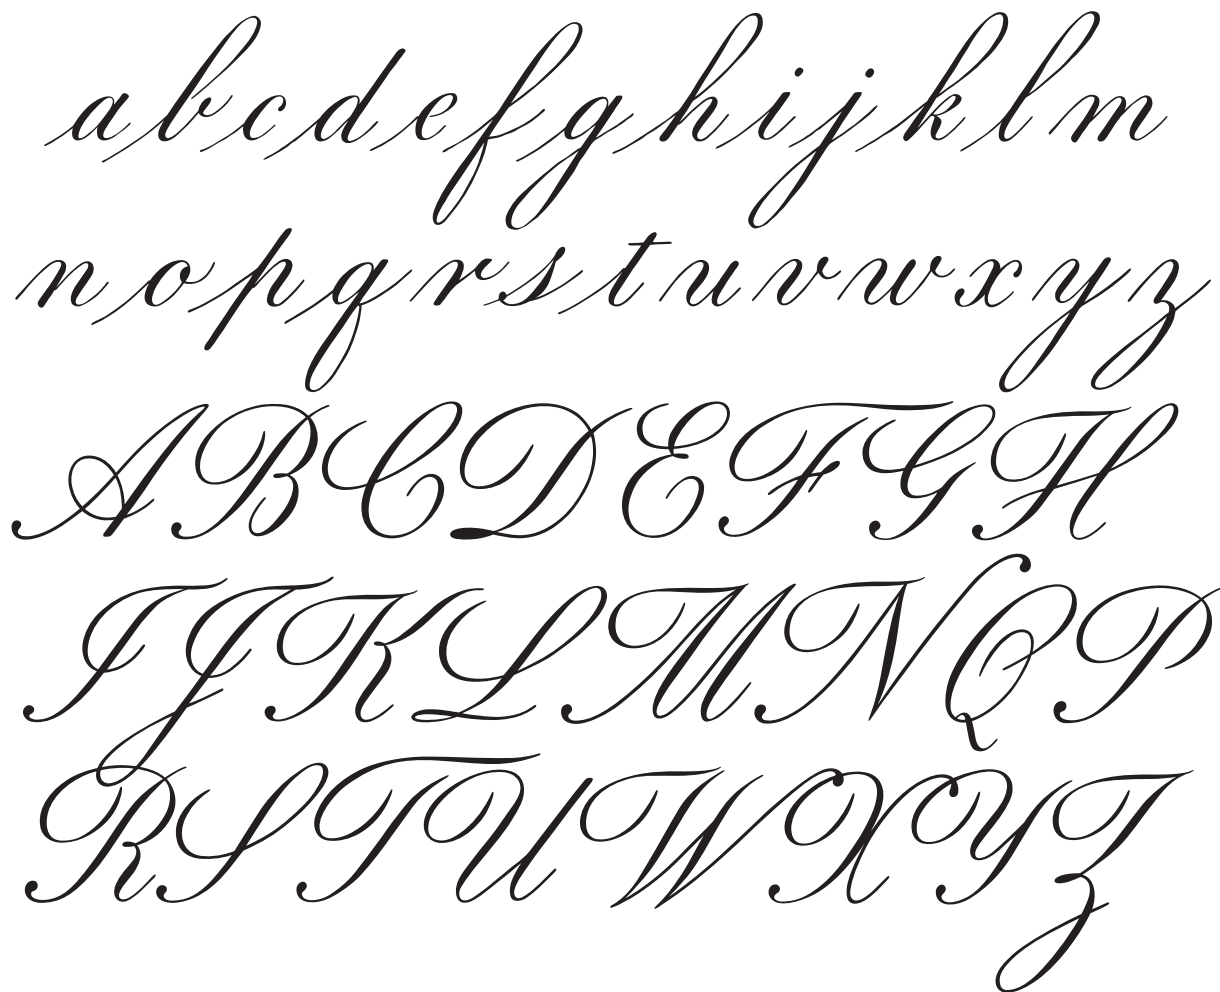 a b c d e f g h i j k l m
n o p q r s t u v w x y z
A B C D E F G H
I J K L M N Q P
R S T U W X Y Z